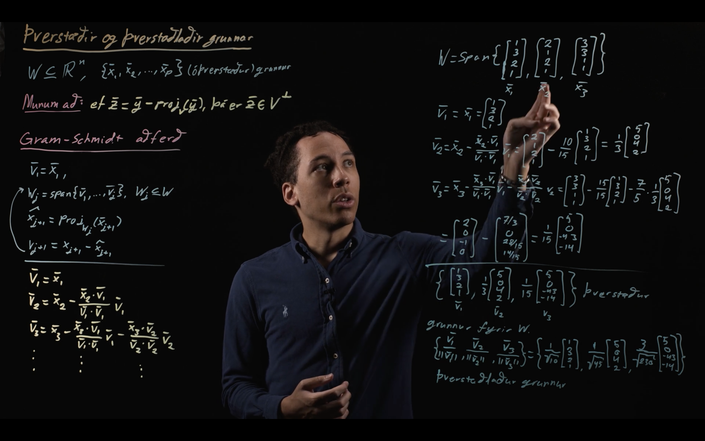 Þverstæðir og þverstaðlaðir grunnar
W ⊆ ℝⁿ, {x̄₁, x̄₂, ..., x̄p} (óþverstæður) grunnur
Munum að: ef z̄ = ȳ − proj_V(ȳ), þá er z̄ ∈ V^⊥
Gram-Schmidt aðferð
v̄₁ = x̄₁,
W_j = span{v̄₁, ..., v̄_j}, W_j ⊆ W
x̂_{j+1} = proj_{W_j}(x̄_{j+1})
v_{j+1} = x_{j+1} − x̂_{j+1}
v̄₁ = x̄₁
v̄₂ = x̄₂ − (x̄₂·v̄₁)/(v̄₁·v̄₁) v̄₁
v̄₃ = x̄₃ − (x̄₃·v̄₁)/(v̄₁·v̄₁) v̄₁ − (x̄₃·v̄₂)/(v̄₂·v̄₂) v̄₂
⋮ ⋮ ⋮
W = span{[1 3 2 1], [2 1 2 1], [3 3 1 1]}
x̄₁ x̄₃
v̄₁ = x̄₁ = [1 3 2 1]
v̄₂ = x̄₂ − (x̄₂·v̄₁)/(v̄₁·v̄₁) = − 10/15 [1 3 2 1] = 1/3 [5 0 4 2]
v̄₃ = x̄₃ − (x̄₃·v̄₁)/(v̄₁·v̄₁) v̄₁ − v₂ = [3 3 1 1] − 15/15 [1 3 2 1] − 7/5 · 1/3 [5 0 4 2]
= [2 0 −1 0] − [7/3 0 28/15 14/15] = 1/15 [5 0 −43 −14]
{[1 3 2 1], 1/3 [5 0 4 2], 1/15 [5 0 −43 −14]} þverstæður
v̄₁ v₂ v₃
grunnur fyrir W.
{v̄₁/||v̄₁||, v̄₂/||v̄₂||, v̄₃/||v̄₃||} = {1/√15 [1 3 2 1], 1/√45 [5 0 4 2], [5 0 −43 −14]}
Þverstaðlaður grunnur